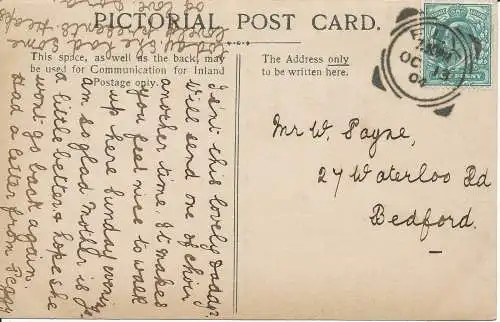 PICTORIAL POST CARD.
This space, as well as the back, may
be used for Communication for Inland
Postage only.
The Address only
to be written here.
HALFPENNY
OC
04
Mr W. Payne,
27 Waterloo Rd
Bedford.
Isn't this lovely Dada?
Will send one of choir
another time. It makes
you feel nice to walk
up here Sunday evening
am so glad mother is
a little better & hope she
won't go back again.
Had a letter from Peggy
she had some